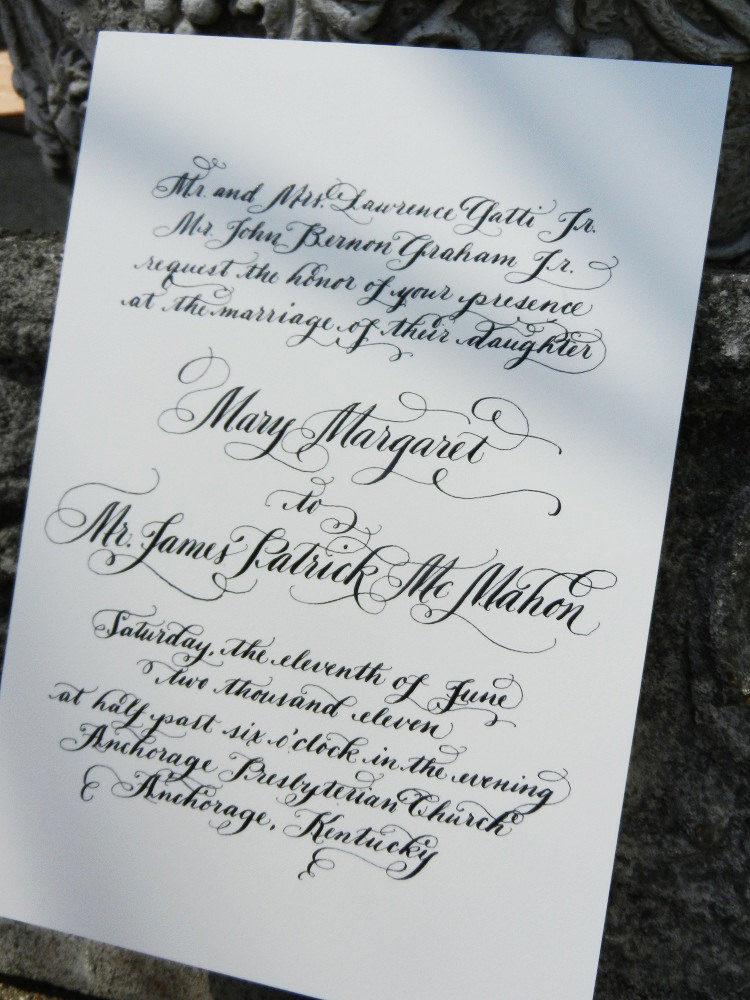 Mr. and Mrs. Lawrence Gatti Jr.
Mr. John Bernon Graham Jr.
request the honor of your presence
at the marriage of their daughter
Mary Margaret
to
Mr. James Patrick Mc Mahon
Saturday, the eleventh of June
two thousand eleven
at half past six o'clock in the evening
Anchorage Presbyterian Church
Anchorage, Kentucky